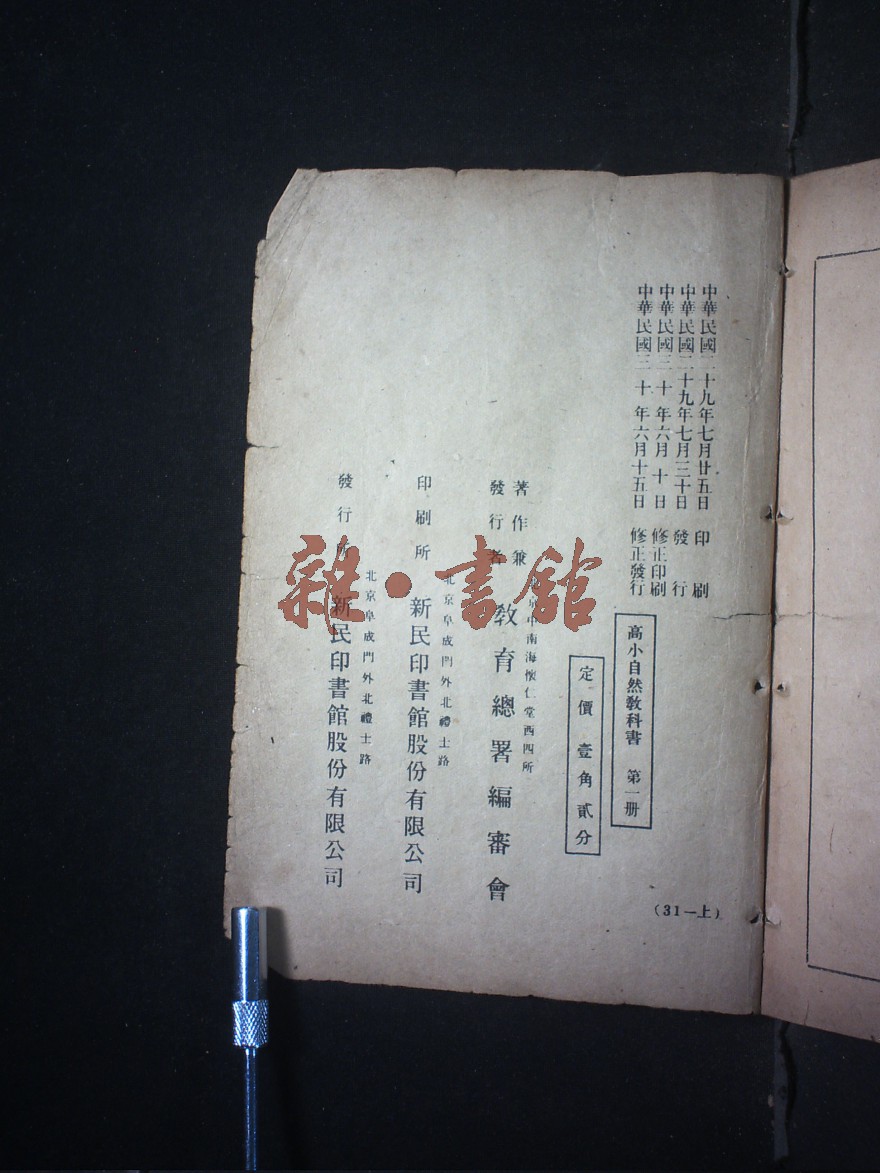 中華民國二十九年七月廿五日 印刷
中華民國二十九年七月三十日 發行
中華民國三十年六月十日 修正印刷
中華民國三十年六月十五日 修正發行
高小自然教科書 第一册
定價壹角貳分
著作兼
發行者
京中南海懷仁堂西四所
教育總署編審會
印刷所
北京阜成門外北禮士路
新民印書館股份有限公司
發行所
北京阜成門外北禮士路
新民印書館股份有限公司
(31—上)
雜·書館